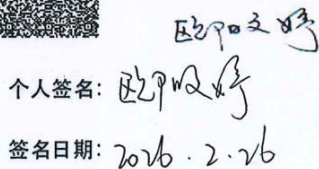 欧阳文婷
个人签名: 欧阳文婷
签名日期: 2026.2.26